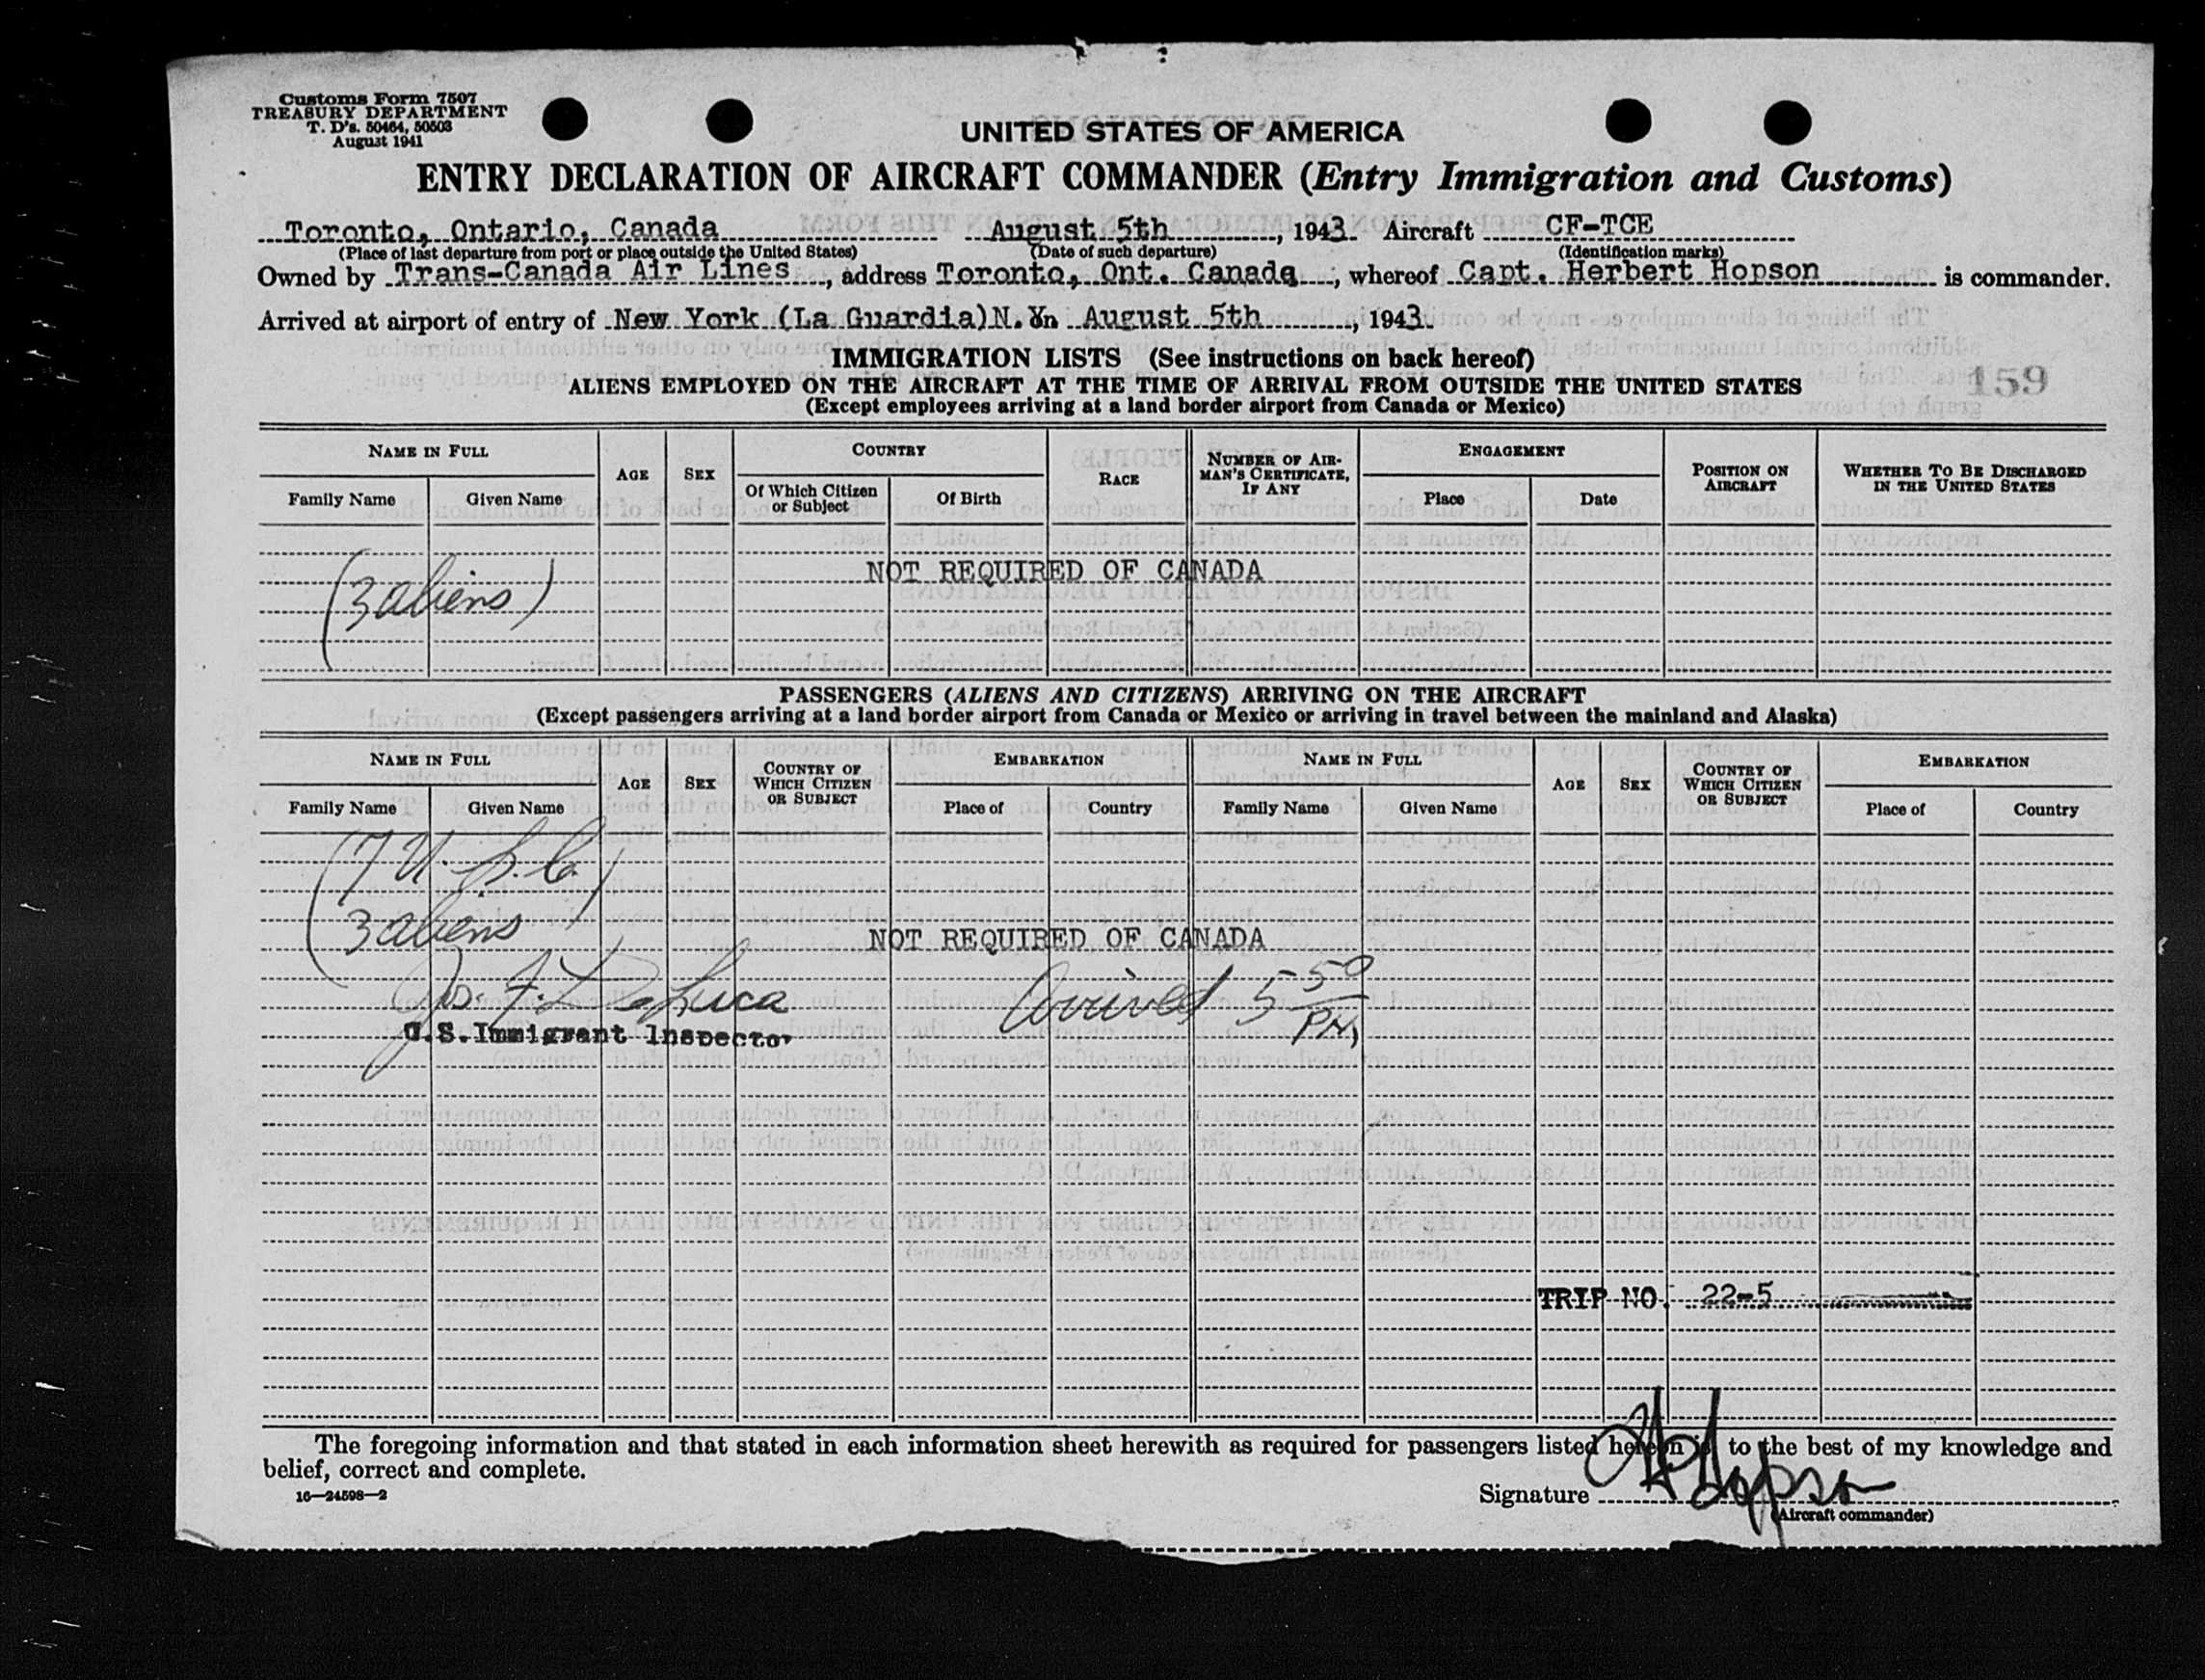 Customs Form 7507
TREASURY DEPARTMENT
T. D's. 50464, 50503
August 1941
UNITED STATES OF AMERICA
ENTRY DECLARATION OF AIRCRAFT COMMANDER (Entry Immigration and Customs)
Toronto, Ontario, Canada August 5th, 1943 Aircraft CF-TCE
(Place of last departure from port or place outside the United States) (Date of such departure) (Identification marks)
Owned by Trans-Canada Air Lines, address Toronto, Ont. Canada, whereof Capt. Herbert Hopson is commander.
Arrived at airport of entry of New York (La Guardia) N.Y. on August 5th, 1943.
IMMIGRATION LISTS (See instructions on back hereof)
ALIENS EMPLOYED ON THE AIRCRAFT AT THE TIME OF ARRIVAL FROM OUTSIDE THE UNITED STATES
159
(Except employees arriving at a land border airport from Canada or Mexico)
NAME IN FULL AGE SEX COUNTRY RACE NUMBER OF AIRMAN'S CERTIFICATE, IF ANY ENGAGEMENT POSITION ON AIRCRAFT WHETHER TO BE DISCHARGED IN THE UNITED STATES
Family Name Given Name Of Which Citizen or Subject Of Birth Place Date
NOT REQUIRED OF CANADA
(3 aliens)
PASSENGERS (ALIENS AND CITIZENS) ARRIVING ON THE AIRCRAFT
(Except passengers arriving at a land border airport from Canada or Mexico or arriving in travel between the mainland and Alaska)
NAME IN FULL AGE SEX COUNTRY OF WHICH CITIZEN OR SUBJECT EMBARKATION NAME IN FULL AGE SEX COUNTRY OF WHICH CITIZEN OR SUBJECT EMBARKATION
Family Name Given Name Place of Country Family Name Given Name Place of Country
(7 U.S.C.)
3 aliens
NOT REQUIRED OF CANADA
Jos. F. DeLuca Arrived 5 50 PM
U.S. Immigrant Inspector
TRIP NO. 22-5
The foregoing information and that stated in each information sheet herewith as required for passengers listed hereon is, to the best of my knowledge and
belief, correct and complete.
16—24598—2
Signature H Hopson
(Aircraft commander)